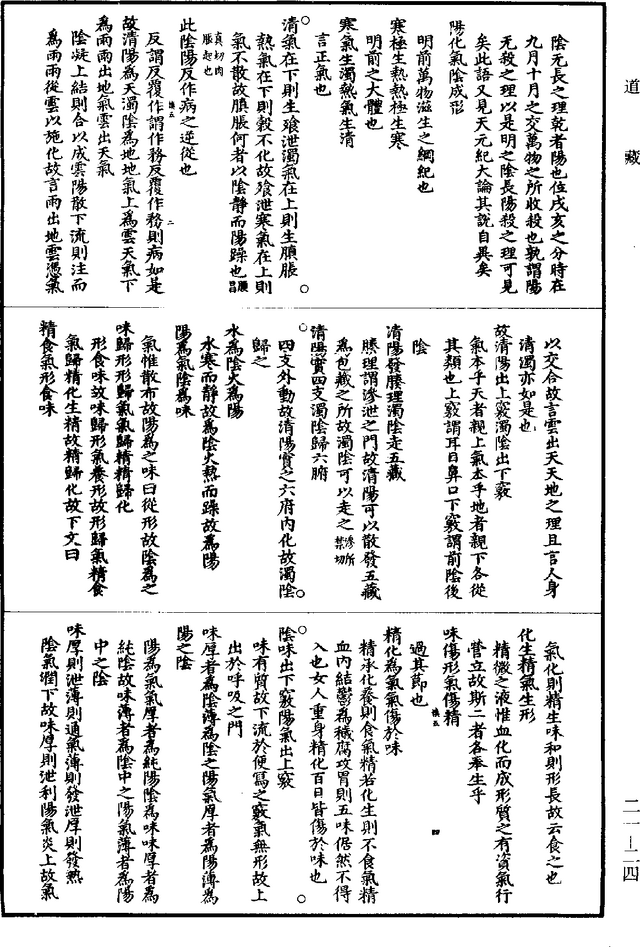 道藏
陰无長之理乾者陽也位戌亥之分時在
九月十月之交萬物之所收殺也孰謂陽
无殺之理以是明之陰長陽殺之理可見
矣此語又見天元紀大論其說自異矣
陽化氣陰成形
明前萬物滋生之綱紀也
寒極生熱熱極生寒
明前之大體也
寒氣生濁熱氣生清
言正氣也
清氣在下則生飧泄濁氣在上則生䐜脹
熱氣在下則穀不化故飧泄寒氣在上則
氣不散故䐜脹何者以陰靜而陽躁也䐜昌
真切肉脹起也
此陰陽反作病之逆從也
反謂反覆作謂作務反覆作務則病如是
故清陽為天濁陰為地地氣上為雲天氣下
為雨雨出地氣雲出天氣
陰凝上結則合以成雲陽散下流則注而
為雨雨從雲以施化故言雨出地雲憑氣
以交合故言雲出天天地之理且言人身
清濁亦如是也
故清陽出上竅濁陰出下竅
氣本乎天者親上氣本乎地者親下各從
其類也上竅謂耳目鼻口下竅謂前陰後
陰
清陽發腠理濁陰走五藏
腠理謂滲泄之門故清陽可以散發五藏
為包藏之所故濁陰可以走之滲所禁切
清陽實四支濁陰歸六腑
四支外動故清陽實之六府內化故濁陰
歸之
水為陰火為陽
水寒而靜故為陰火熱而躁故為陽
陽為氣陰為味
氣惟散布故陽為之味曰從形故陰為之
味歸形形歸氣氣歸精精歸化
形食味故味歸形氣養形故形歸氣精食
氣歸精化生精故精歸化故下文曰
精食氣形食味
氣化則精生味和則形長故云食之也
化生精氣生形
精微之液惟血化而成形質之有資氣行
營立故斯二者各奉生乎
味傷形氣傷精
過其節也
精化為氣氣傷於味
精承化養則食氣精若化生則不食氣精
血內結鬱為穢腐攻胃則五味倨然不得
入也女人重身精化百日皆傷於味也
陰味出下竅陽氣出上竅
味有質故下流於便寫之竅氣無形故上
出於呼吸之門
味厚者為陰薄為陰之陽氣厚者為陽薄為
陽之陰
陽為氣氣厚者為純陽陰為味味厚者為
純陰故味薄者為陰中之陽氣薄者為陽
中之陰
味厚則泄薄則通氣薄則發泄厚則發熱
陰氣潤下故味厚則泄利陽氣炎上故氣
二一—二四